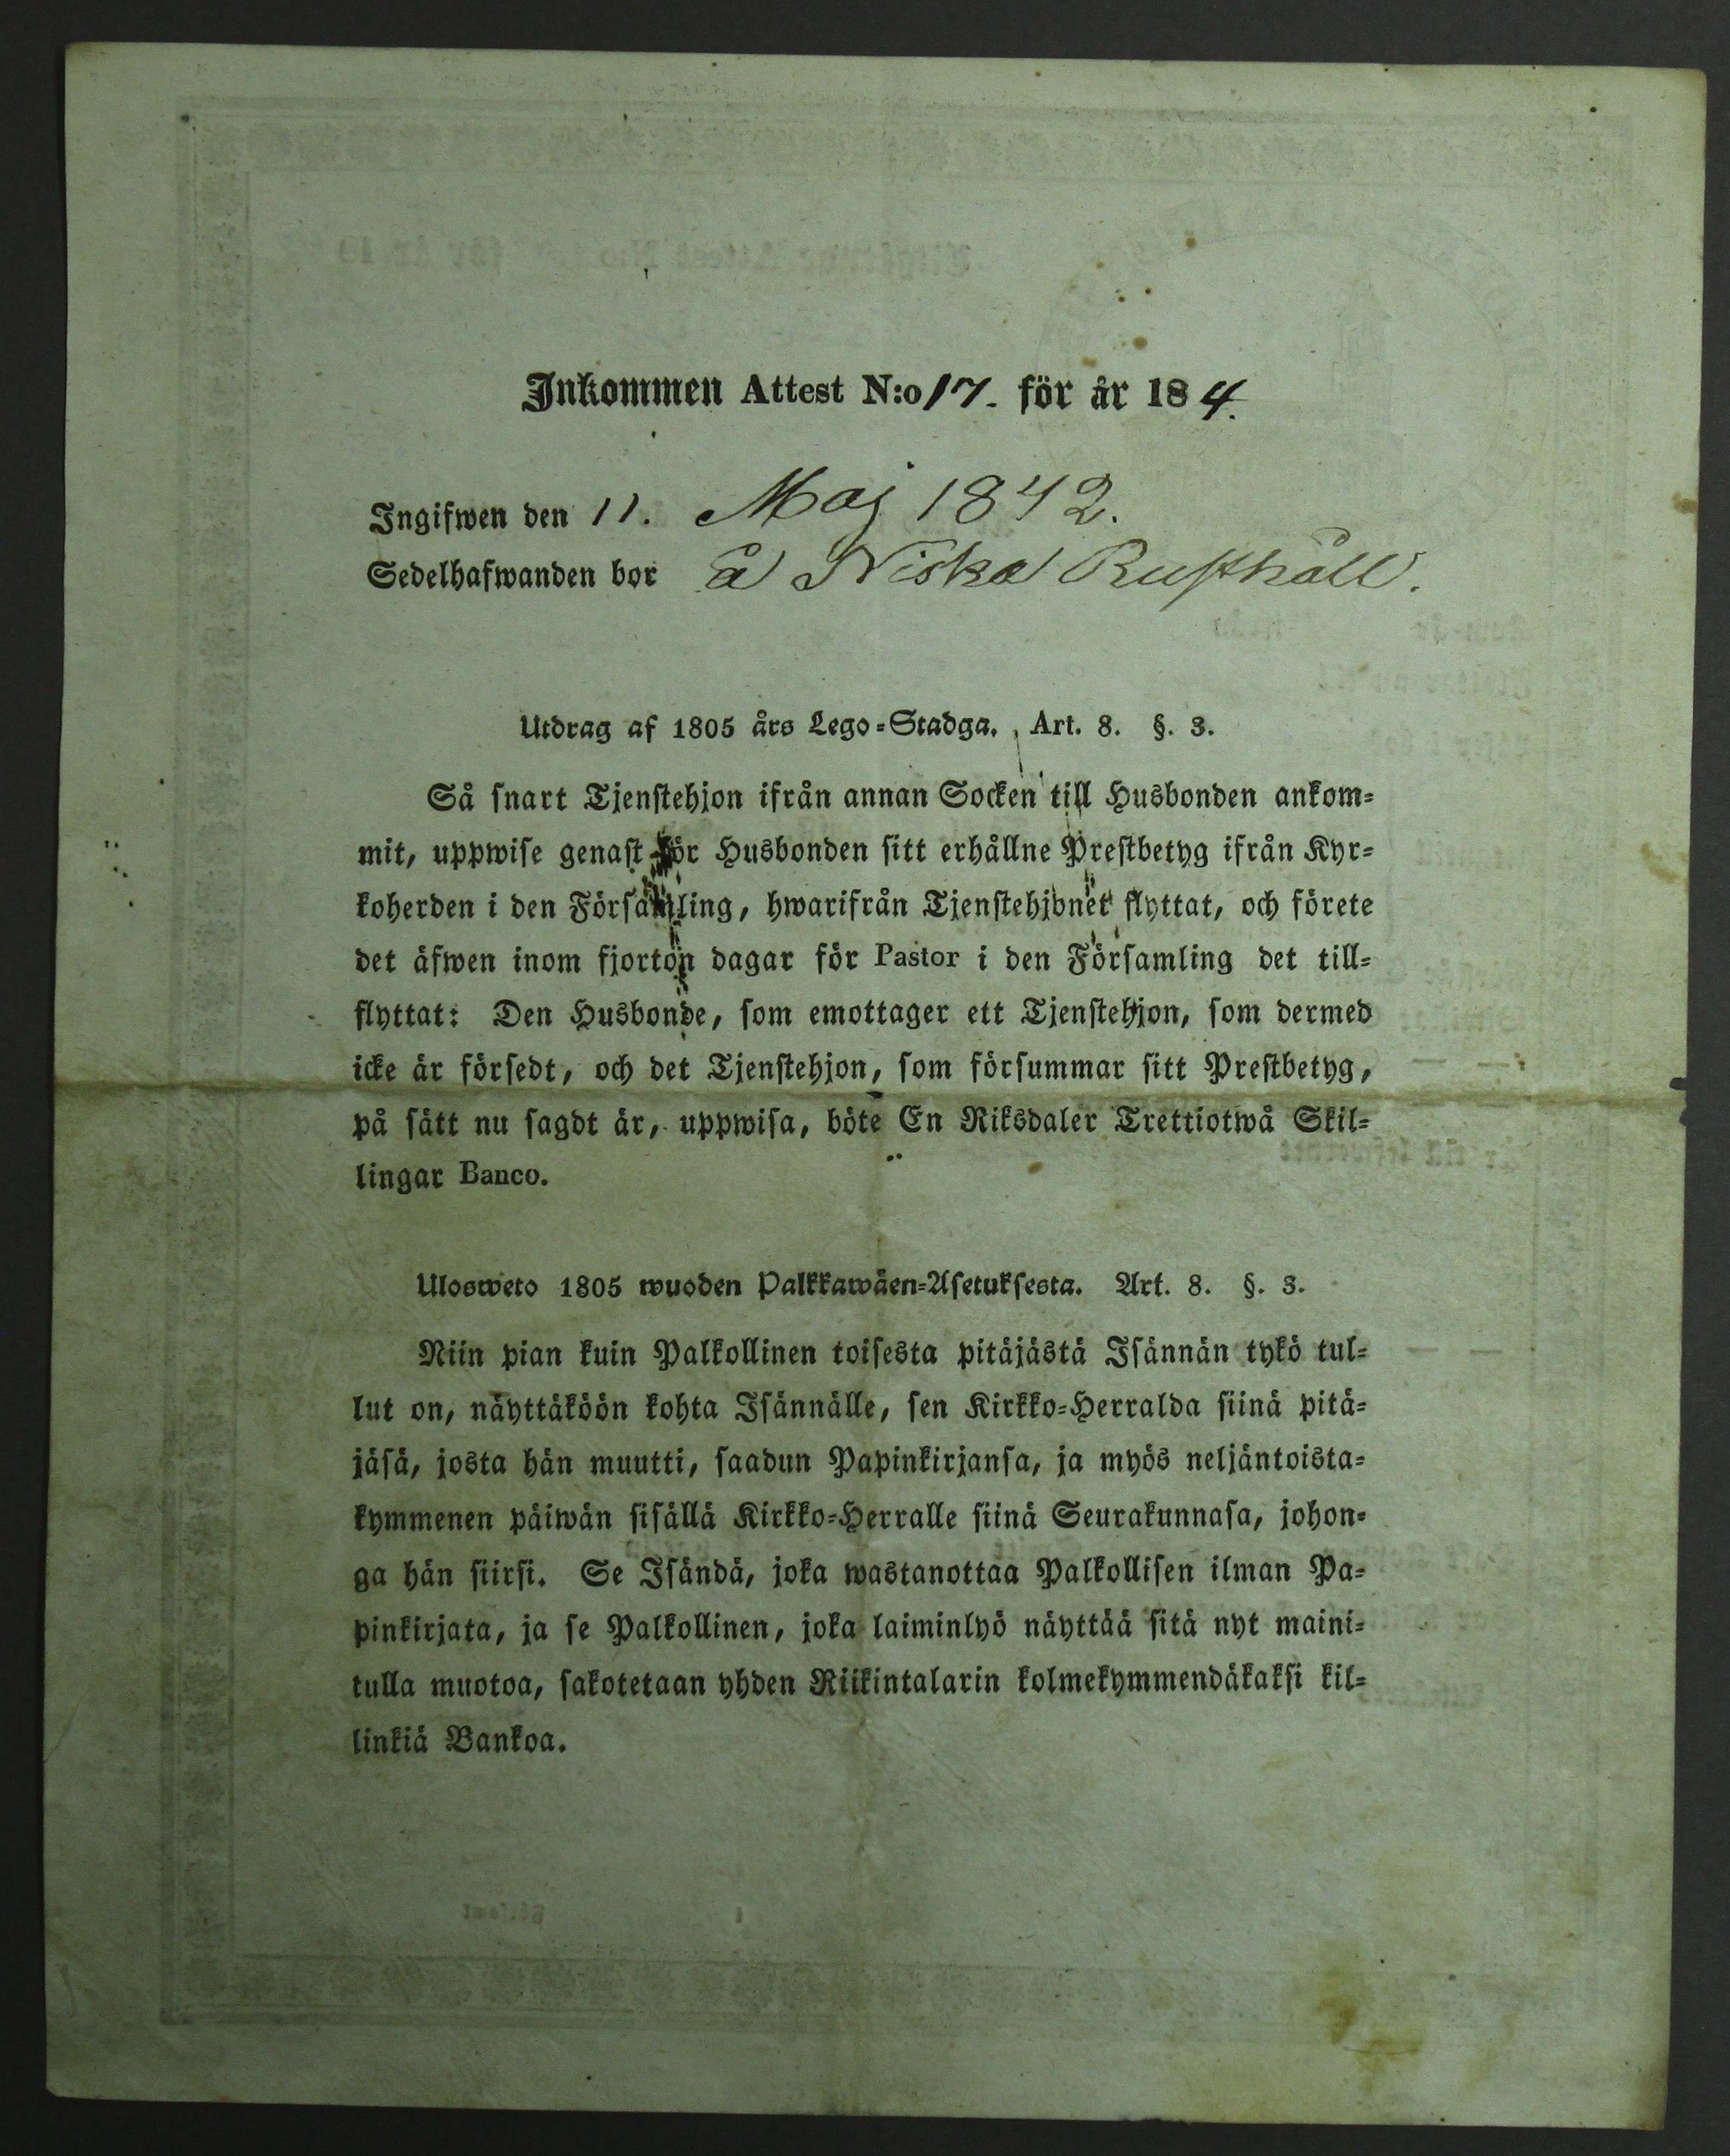 Inkommen Attest N:o 17. för år 184.
Ingifwen den 11. Maj 1842.
Sedelhafwanden bor å Niska Rusthåll.
Utdrag af 1805 års Lego-Stadga. Art. 8. §. 3.
Så snart Tjenstehjon ifrån annan Socken till Husbonden ankom-
mit, uppwise genast för Husbonden sitt erhållne Prestbetyg ifrån Kyr-
koherden i den Församling, hwarifrån Tjenstehjonet flyttat, och förete
det äfwen inom fjorton dagar för Pastor i den Församling det till-
flyttat: Den Husbonde, som emottager ett Tjenstehjon, som dermed
icke är försedt, och det Tjenstehjon, som försummar sitt Prestbetyg,
på sätt nu sagdt är, uppwisa, böte En Riksdaler Trettiotwå Skil-
lingar Banco.
Ulosweto 1805 wuoden Palkkawäen-Asetuksesta. Art. 8. §. 3.
Niin pian kuin Palkollinen toisesta pitäjästä Isännän tykö tul-
lut on, näyttäköön kohta Isännälle, sen Kirkko-Herralda siinä pitä-
jäsä, josta hän muutti, saadun Papinkirjansa, ja myös neljäntoista-
kymmenen päiwän sisällä Kirkko-Herralle siinä Seurakunnasa, johon-
ga hän siirsi. Se Isändä, joka wastanottaa Palkollisen ilman Pa-
pinkirjata, ja se Palkollinen, joka laiminlyö näyttää sitä nyt maini-
tulla muotoa, sakotetaan yhden Riikintalarin kolmekymmendäkaksi kil-
linkiä Bankoa.